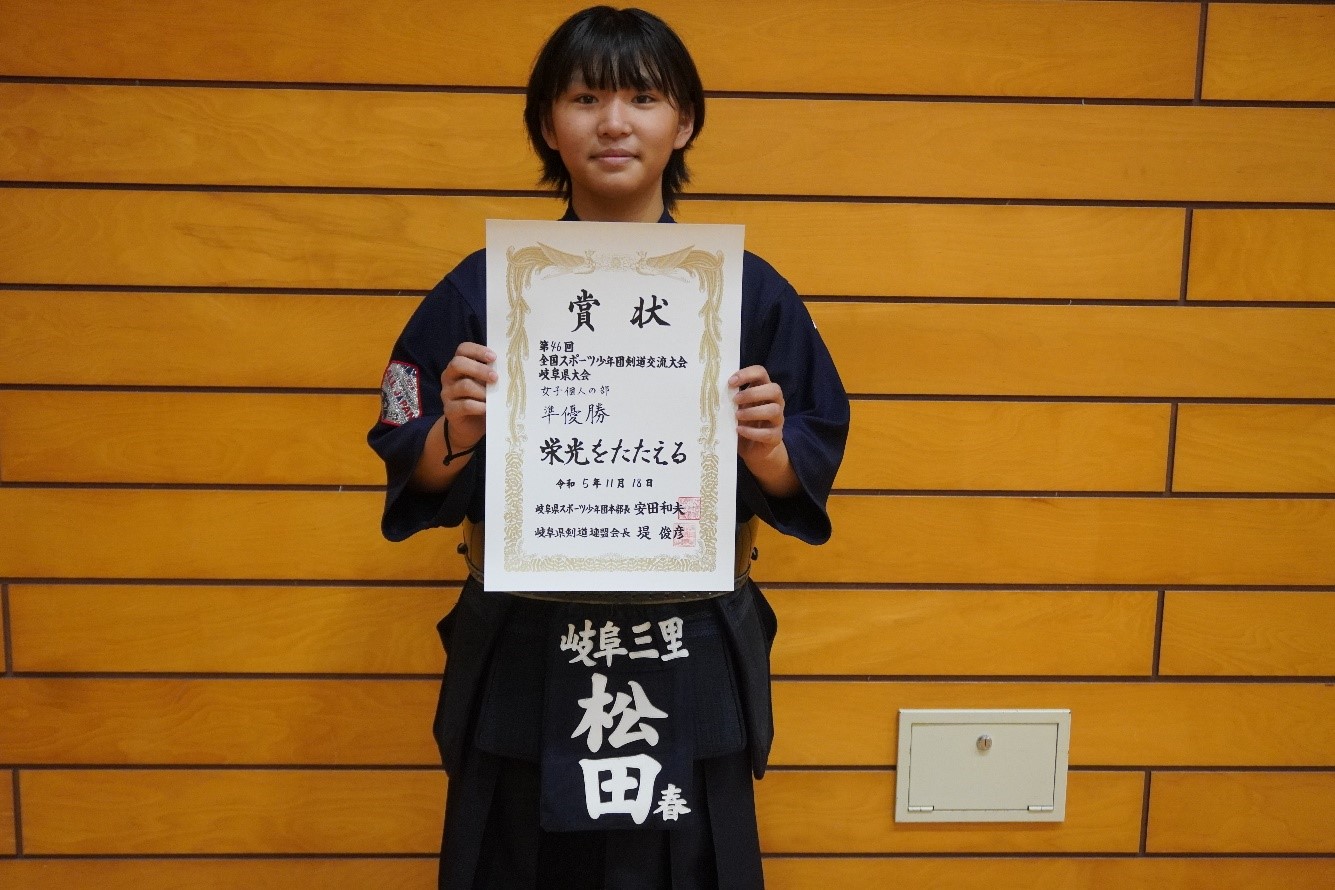 賞状
第46回
全国スポーツ少年団剣道交流大会
岐阜県大会
女子個人の部
準優勝
栄光をたたえる
令和5年11月18日
岐阜県スポーツ少年団本部長 安田和夫
岐阜県剣道連盟会長 堤 俊彦
岐阜三里
松田春